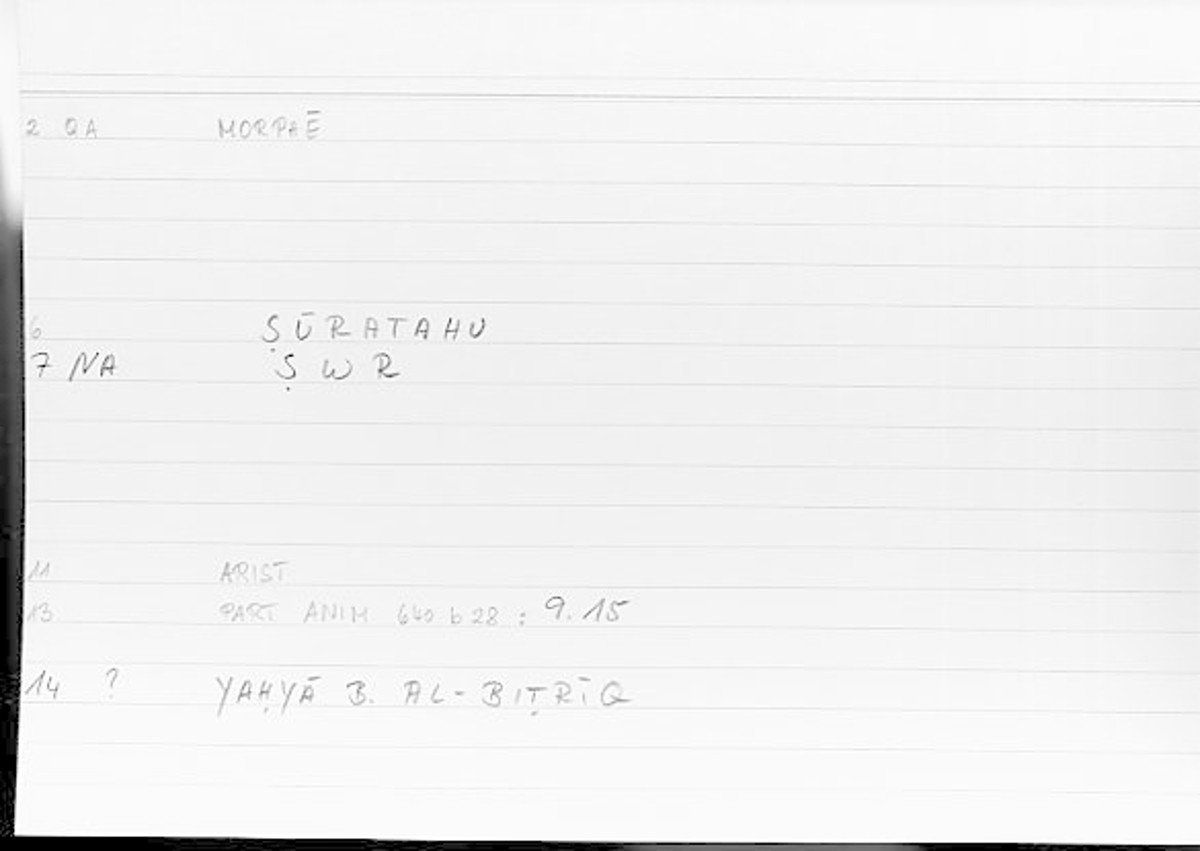 2 QA MORPHĒ
6 ṢŪRATAHU
7 NA Ṣ W R
11 ARIST
13 PART ANIM 640 b 28 : 9.15
14 ? YAḤYĀ B. AL-BIṬRĪQ